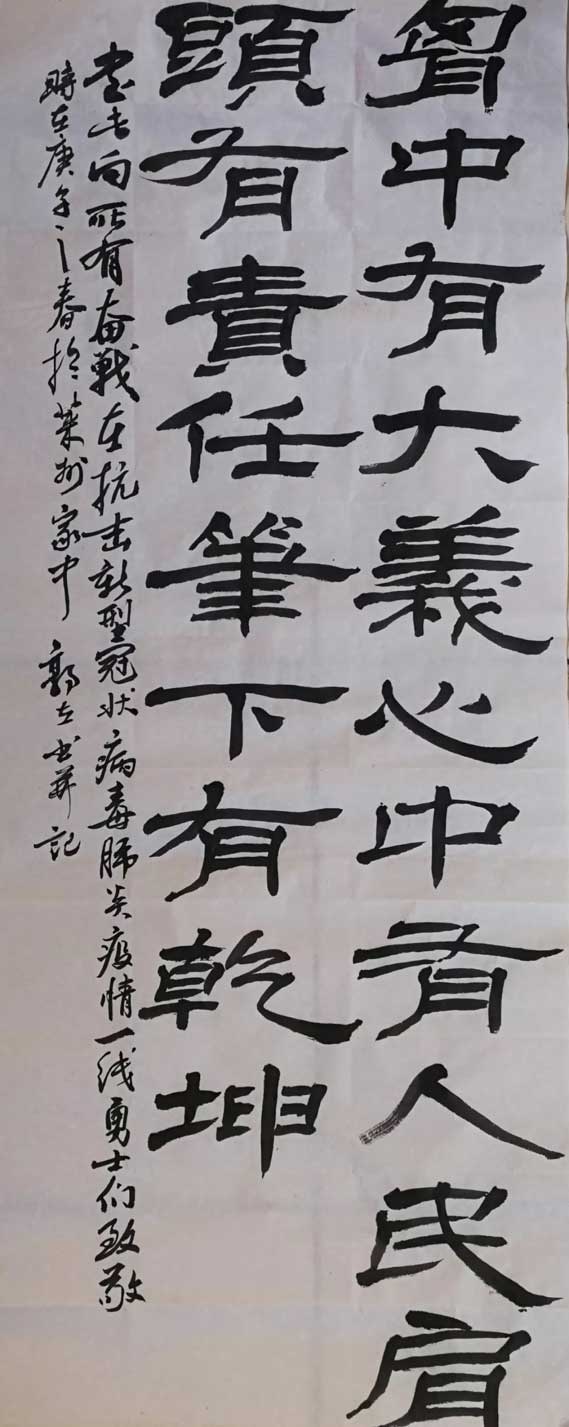 胷中有大義心中有人民肩
頭有責任筆下有乾坤
書此向所有奋戰在抗击新型冠狀病毒肺炎疫情一线勇士们致敬
時在庚子之春於莱州家中 郭立书并記